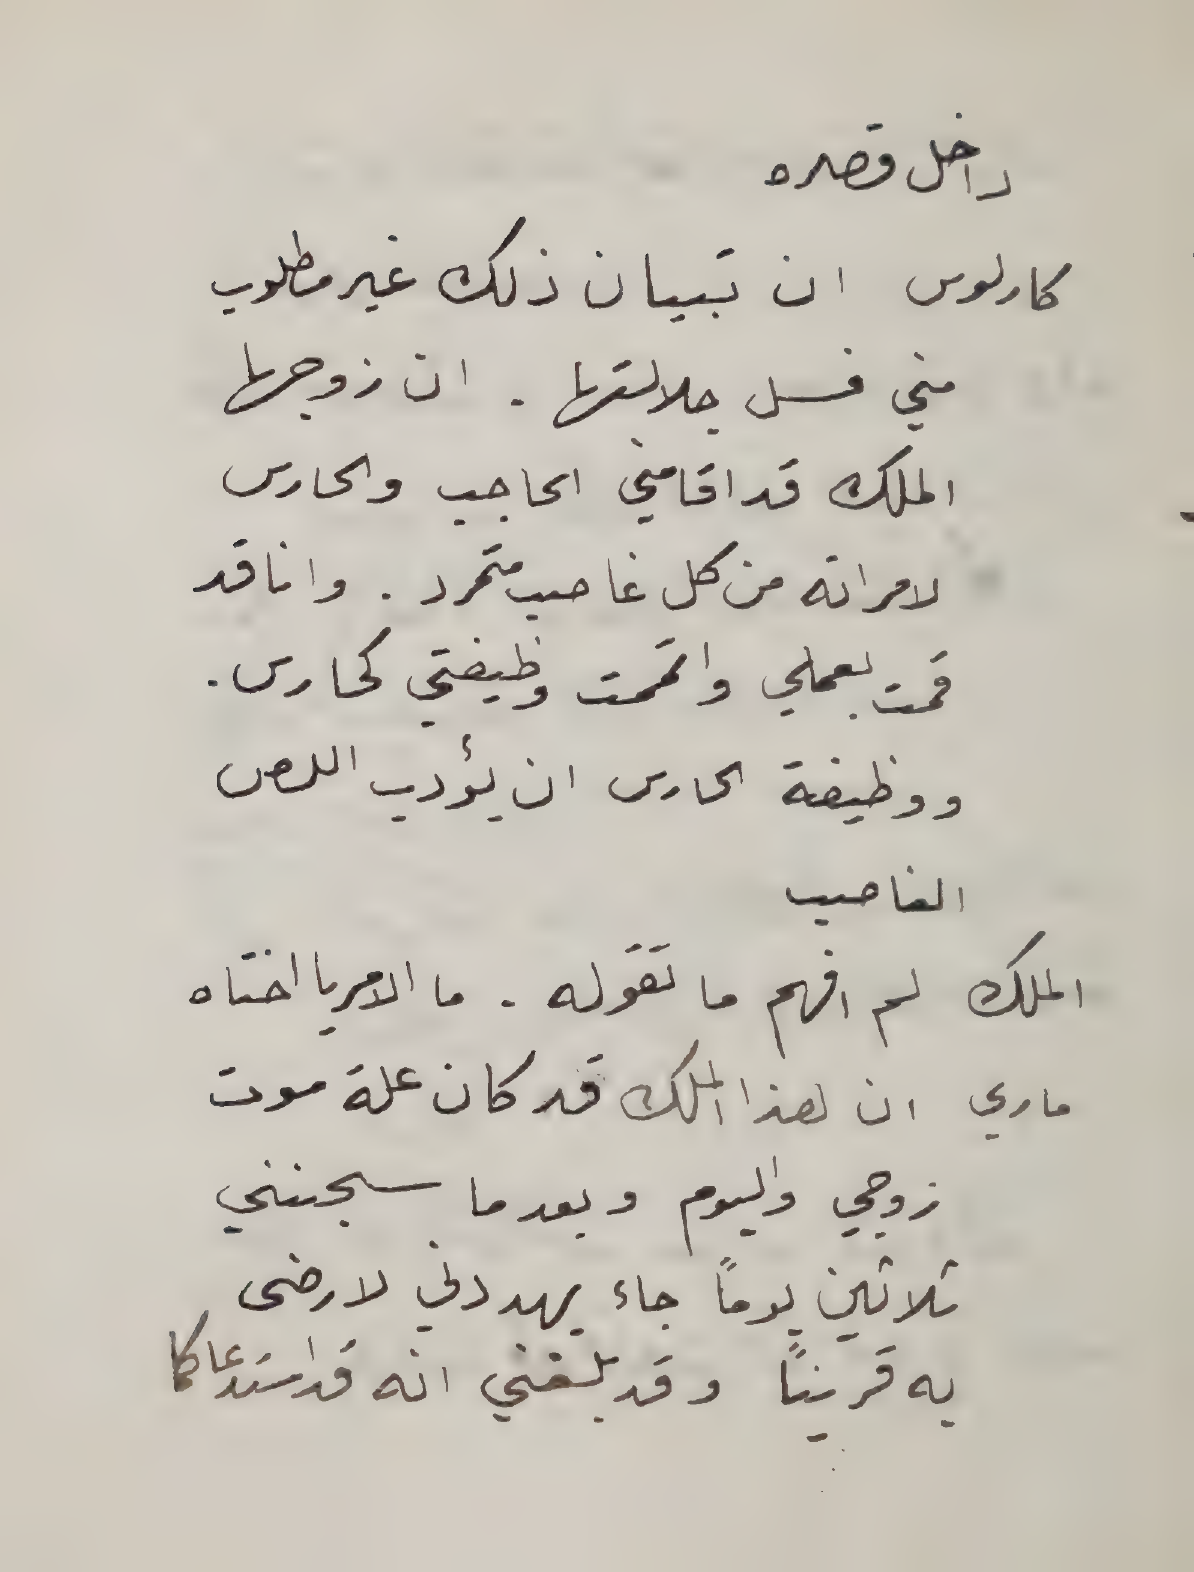 داخل قصره
كارلوس ان تبيان ذلك غير مطلوب
مني فسل جلالتها . ان زوجها
الملك قد اقامني الحاجب والحارس
لامراته من كل غاصب متمرد . وانا قد
قمت بعملي واتممت وظيفتي كحارس .
ووظيفة الحارس ان يؤدب اللص
الغاصب
الملك لم افهم ما تقوله . ما الامر يا اختاه
ماري ان هذا الملك قد كان علة موت
زوجي واليوم وبعد ما سجنني
ثلاثين يوماً جاء يهددني لارضى
به قريناً وقد بلغني انه قد استدعاكما